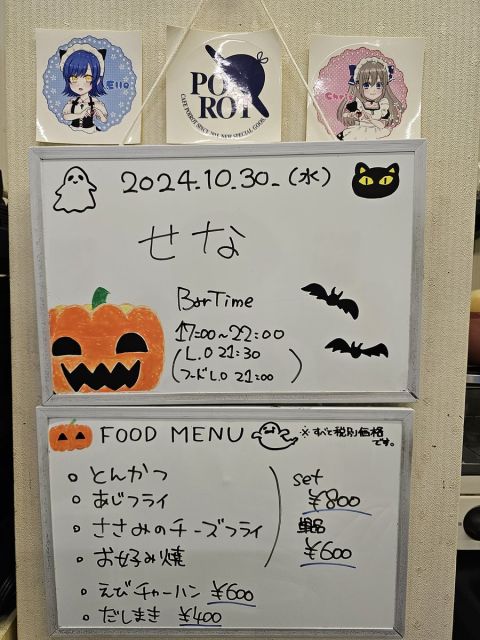 Ello
POI
ROT
Chri
2024.10.30.(水)
せな
BarTime
17:00~22:00
(L.O 21:30
フードL.O 21:00)
FOOD MENU ※すべて税別価格です。
。とんかつ
。あじフライ
。ささみのチーズフライ
。お好み焼
set
¥800
単品
¥600
。えびチャーハン ¥600
。だしまき ¥400